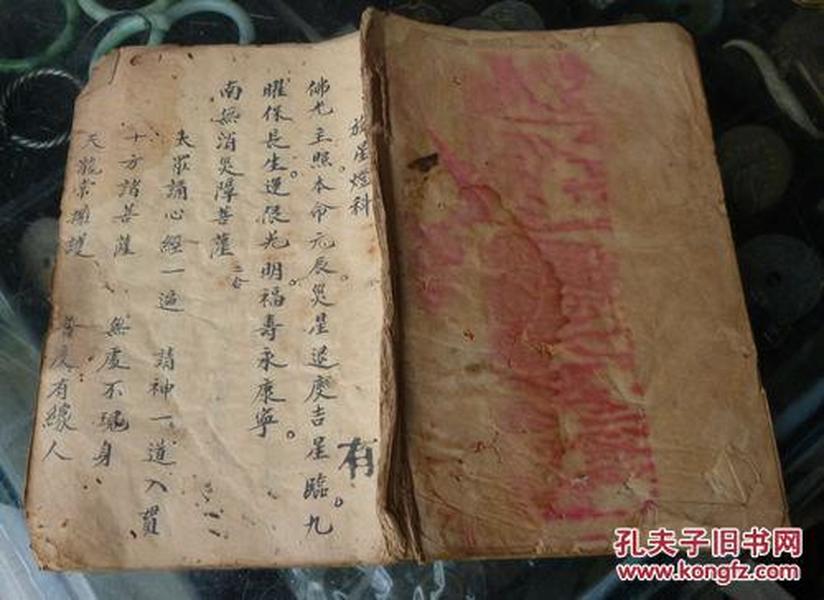 放星燈科
佛光主照本命元辰。災星退度吉星臨。九
曜保長生。運限光明。福壽永康寧。
南無消災障菩薩 三合
大眾誦心經一遍 請神一道入貫
十方諸菩薩 無處不現身
天龍常擁護 普度有緣人
有
孔夫子旧书网
www.kongfz.com